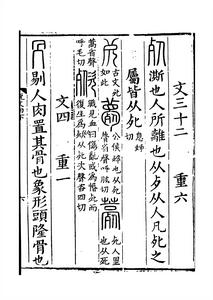 文三十二 重六
死 澌也人所離也从歺从人凡死之
屬皆从死 息姊切
古文死如此 薨 公侯𣨛也从死瞢省聲呼肱切 薧 死人里也从死
蒿省聲呼毛切 㱞 戰見血曰傷亂或為惛死而復生為㱞从死次聲咨四切
文四 重一
冎 剔人肉置其骨也象形頭隆骨也